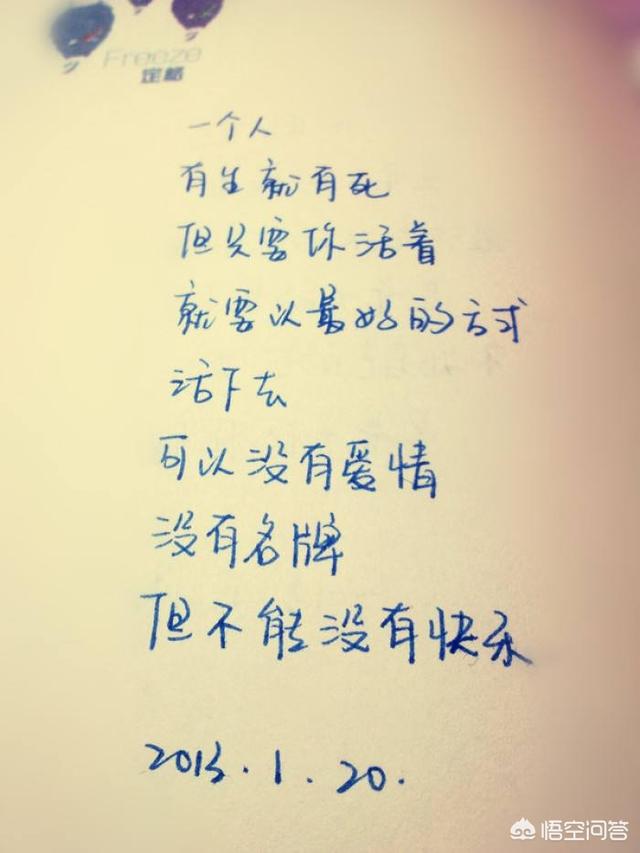 Freeze
定格
一个人
有生就有死
但只要你活着
就要以最好的方式
活下去
可以没有爱情
没有名牌
但不能没有快乐
2013.1.20.
悟空问答